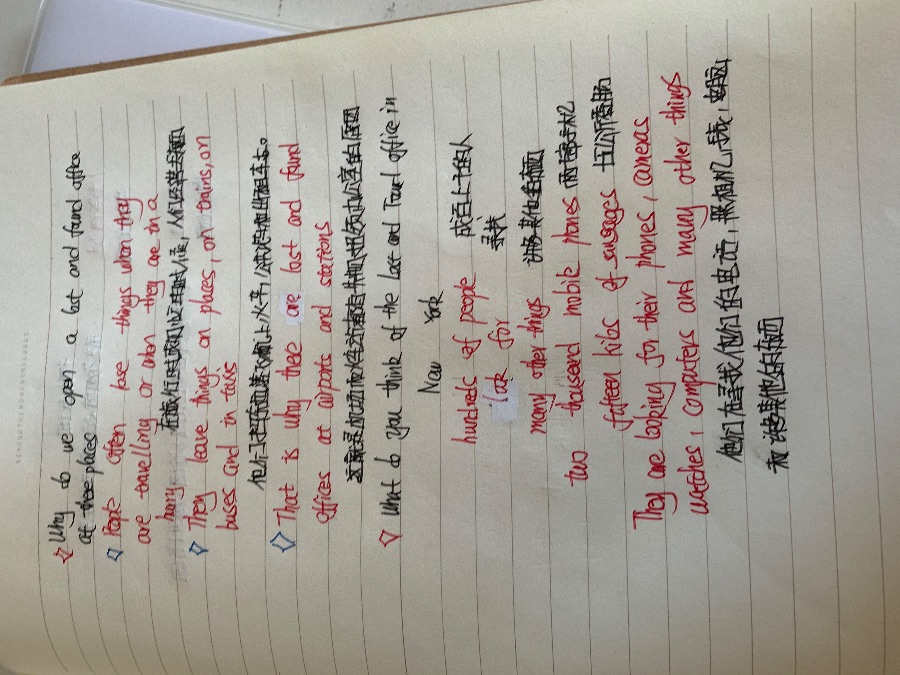 Why do we open a lost and found office
at these places
People often lose things when they
are travelling or when they are in a
hurry 在旅行时或匆忙时候，人们经常丢东西
They leave things on places, on trains, on
buses and in taxis
他们把东西落
That is why there are lost and found
offices at airports and stations
这就是
What do you think of the Lost and Found office in
New York
hundreds of people 成百上千的人
look for 寻找
many other things 许多其他的东西
two thousand mobile phones 两千部手机
fifteen kilos of sausages 十五公斤香肠
They are looking for their phones, cameras
watches, computers and many other things
他们在寻找他们的电话，照相机，手表，电脑
和许多其他的东西